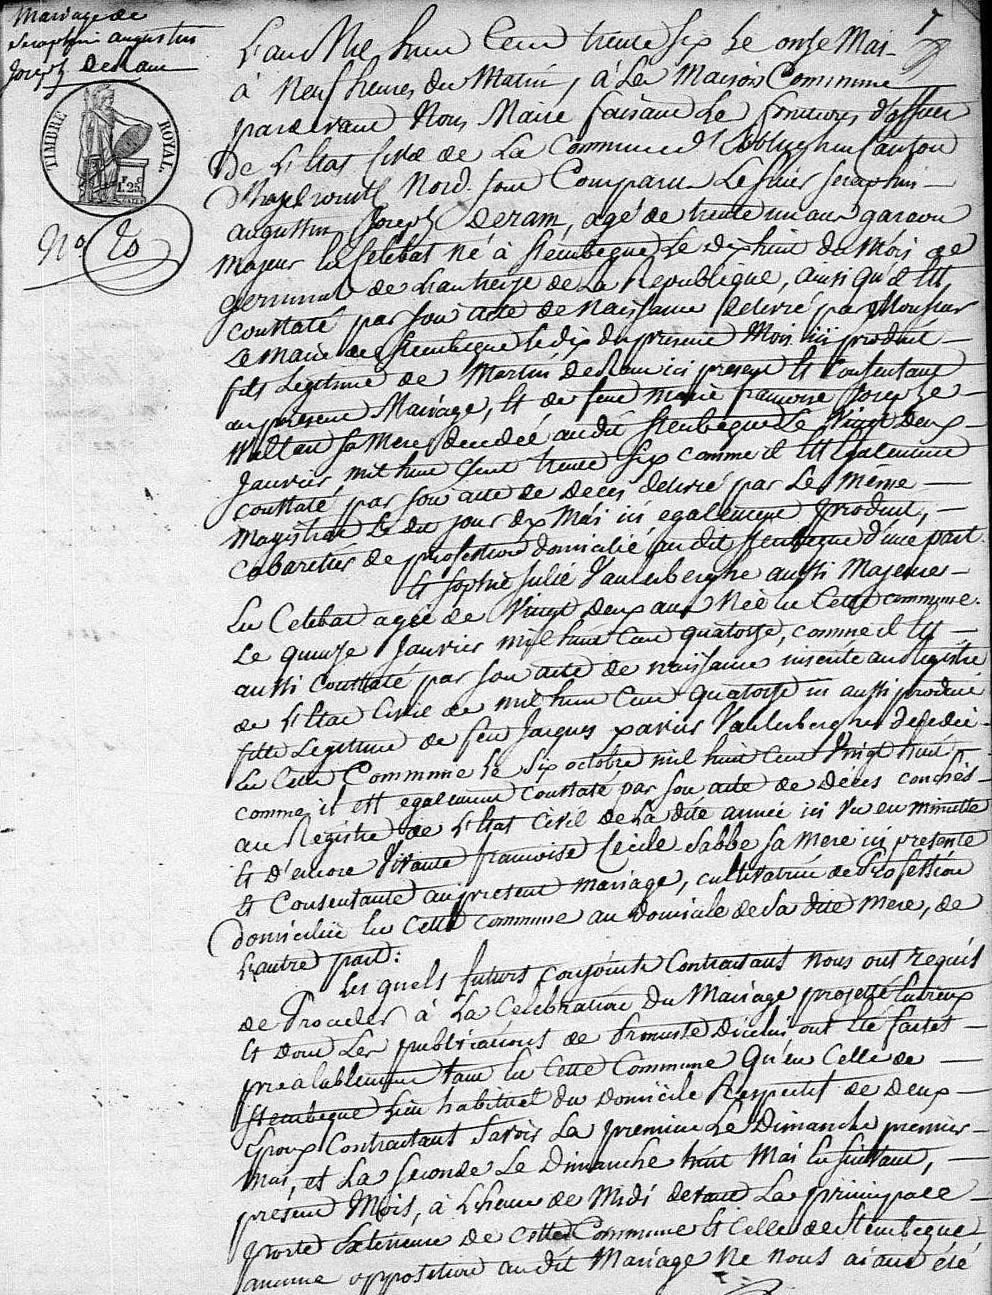 Mariage de
Seraphin augustin
Joseph Deram
TIMBRE ROYAL.
1F 25
No. 20
L'an Mil huit Cent trente six Le onze Mai
à Neuf heures du Matin, à La Maison Commune
pardevant Nous Maire faisant Le fonctions d'officier
De L'Etat Civil de La Commune d'Ebblinghem Canton
d'hazebrouck Nord. sont Comparu Le sieur Seraphin
augustin Joseph Deram, agé de trente un ans garcon
Majeur en Celibat Né à Steenbecque Le dix huit du Mois de
Germinal de L'an treize de La Republique, ainsi qu'il Est
constaté par son acte de Naissance delivré par Monsieur
Le Maire de Steenbecque le dix du present Mois ici produit
fils Legitime de Martin deRam ici present Et Consentant
au present Mariage, Et de feue Marie francoise Joseph
sa Mere decedée audit Steenbecque Le Vingt deux
Janvier mil huit Cent trente six comme il Est Egalement
constaté par son acte de Deces delivré par Le même
Magistrat Le dit jour dix Mai ici egalement produit,
Cabaretier de profession domicilié audit Steenbecque d'une part.
Et Sophie Julie Vanlerberghe aussi Majeure
En Celibat agée de Vingt deux ans Née en Cette commune.
Le quinze Janvier mil huit cent quatorze, comme il Est
aussi constaté par son acte de naissance inscrite au Registre
de L'Etat Civil de mil huit Cent quatorze ici aussi produit
fille Legitime de feu Jacques xavier Vanlerberghe decedé
En Cette Commune le Six octobre mil huit Cent Vingt huit
comme il Est egalement constaté par son acte de Déces couchés
au Registre de L'Etat Civil de La dite année ici Vu en minutte
Et D'encore Vivante francoise Cecile Sabbe sa Mere ici presente
Et Consentante au present mariage, cultivatrice de Profession
domiciliée en Cette commune au Domicile de La dite Mere, de
L'autre part:
Les quels futurs conjoints Contractant Nous ont requis
de Proceder à La Celebration du Mariage projetté Entreux
Et dont Les publications de ont Eté faites
prealablement tant En Cette Commune Qu'en Celle de
Steenbecque Lieu habituel du Domicile Respectif de Deux
Epoux Contractant Savoir La premiere Le Dimanche premier
Mai, et La Seconde Le Dimanche huit Mai En suivant,
present Mois, à L'heure de Midi devant La principale
porte Exterieure de Cette Commune Et Celle de Steenbecque
aucune opposition audit Mariage Ne Nous aiant été